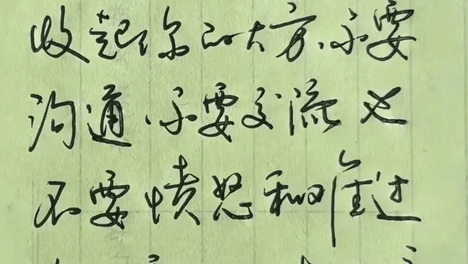 收起你的大方、不要
沟通、不要交流 也
不要愤怒和难过